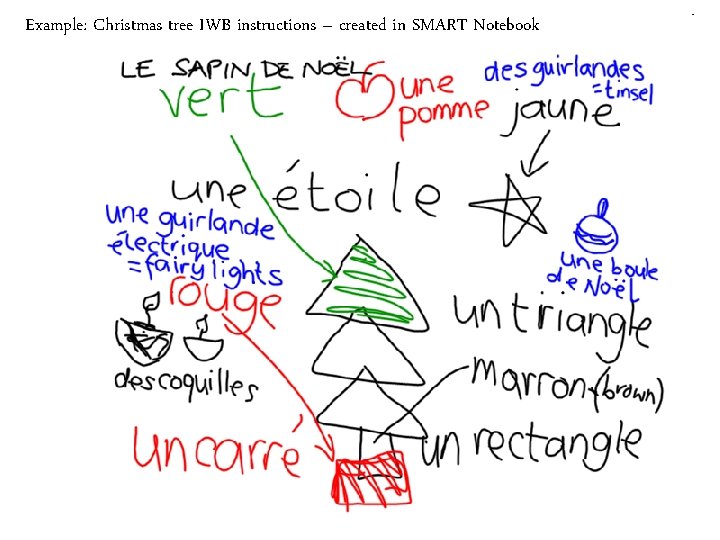 Example: Christmas tree IWB instructions – created in SMART Notebook
LE SAPIN DE NOËL
vert
une
pomme
des guirlandes
= tinsel
jaune
une étoile
une guirlande
électrique
= fairy lights
une boule
de Noël
rouge
un triangle
des coquilles
marron (brown)
un carré
un rectangle